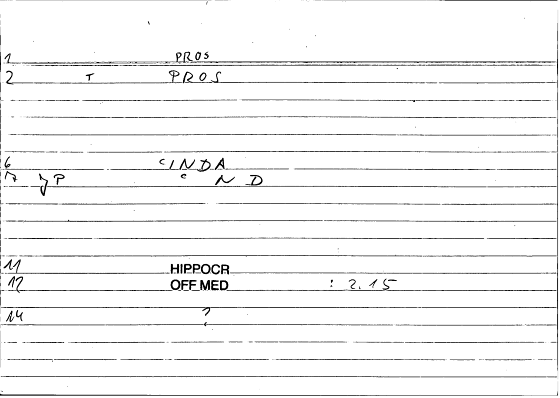 1 PROS
2 T PROS
6 CINDA
17 yP C N D
11 HIPPOCR
12 OFF MED : 2.15
14 ?